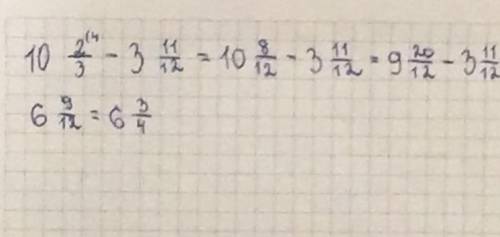 10 2/3 ⁽⁴ - 3 11/12 = 10 8/12 - 3 11/12 = 9 20/12 - 3 11/12
6 9/12 = 6 3/4